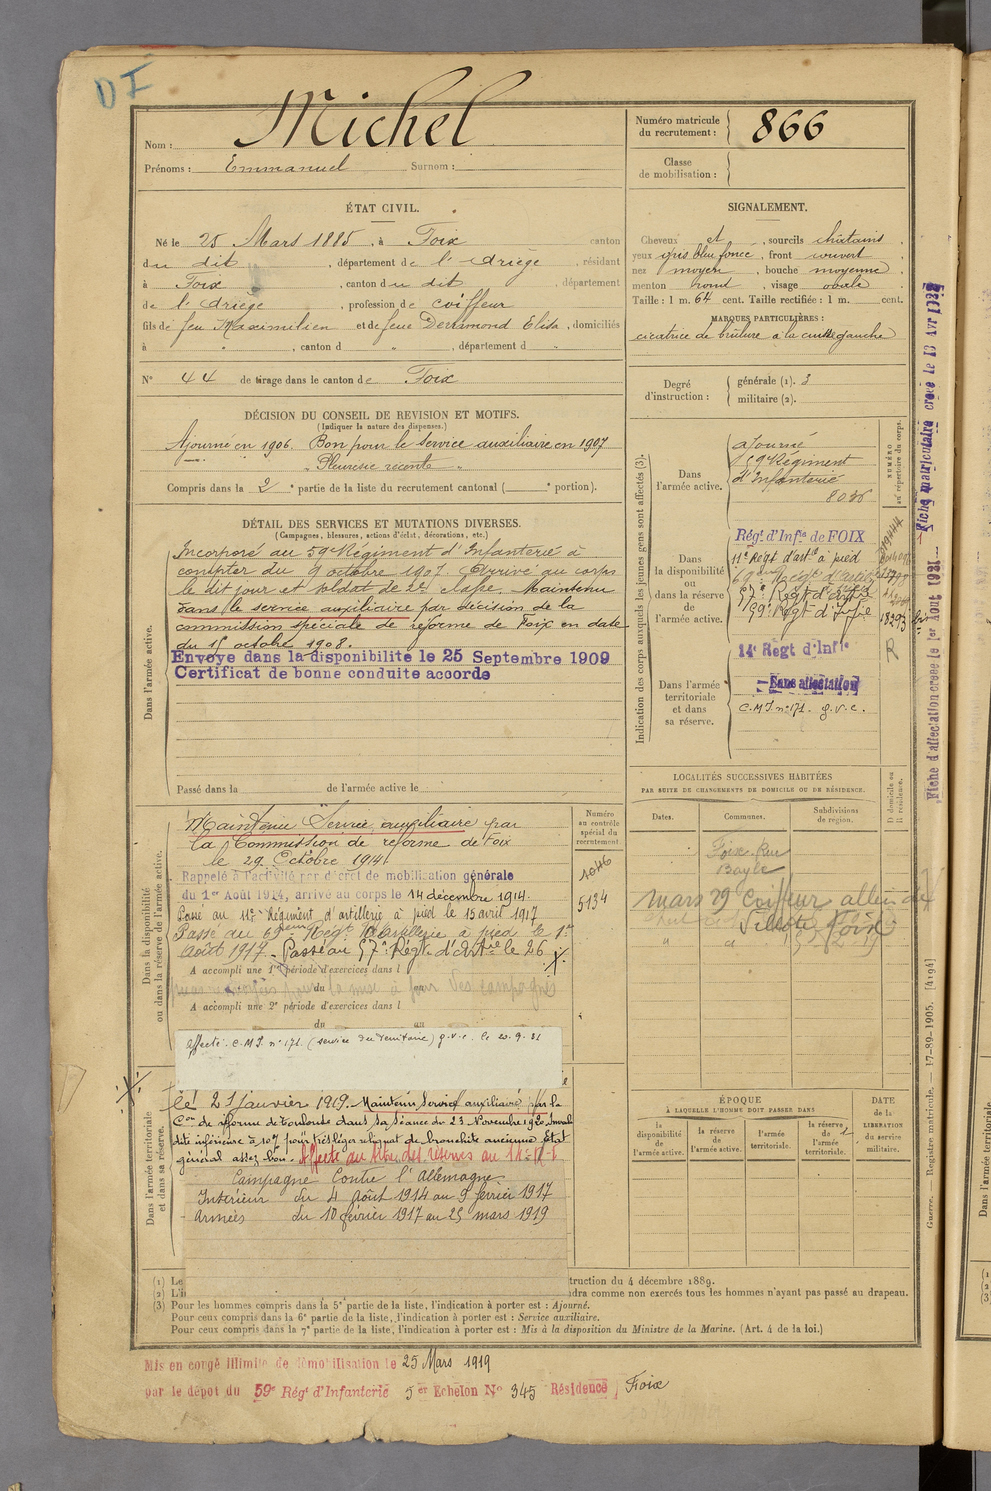 DI
Nom : Michel
Prénoms : Emmanuel Surnom :
Numéro matricule du recrutement : 866
Classe de mobilisation :
ÉTAT CIVIL.
Né le 25 Mars 1885, à Foix canton
du dit, département de l'Ariège, résidant
à Foix, canton du dit département
de l'Ariège, profession de coiffeur
fils de feu Maximilien et de feue Derramond Elisa, domiciliés
à " , canton d " , département d "
N° 44 de tirage dans le canton de Foix
SIGNALEMENT.
Cheveux et , sourcils châtains,
yeux gris bleu foncé, front couvert
nez moyen, bouche moyenne,
menton rond, visage ovale
Taille : 1 m. 64 cent. Taille rectifiée : 1 m. cent.
MARQUES PARTICULIÈRES :
cicatrice de brûlure à la cuisse gauche
Degré d'instruction : générale (1). 3
militaire (2).
DÉCISION DU CONSEIL DE REVISION ET MOTIFS.
(Indiquer la nature des dispenses.)
Ajourné en 1906. Bon pour le service auxiliaire en 1907
" Pleurésie récente "
Compris dans la 2e partie de la liste du recrutement cantonal ( e portion).
DÉTAIL DES SERVICES ET MUTATIONS DIVERSES.
(Campagnes, blessures, actions d'éclat, décorations, etc.)
Dans l'armée active.
Incorporé au 59e Régiment d'Infanterie à
compter du 9 octobre 1907. Arrivé au corps
le dit jour et soldat de 2e classe. Maintenu
dans le service auxiliaire par décision de la
commission spéciale de réforme de Foix en date
du 15 octobre 1908.
Envoyé dans la disponibilité le 25 Septembre 1909
Certificat de bonne conduite accordé
Passé dans la de l'armée active le
Indication des corps auxquels les jeunes gens sont affectés (3).
NUMÉRO au répertoire du corps.
Dans l'armée active.
ajourné
59e Régiment
d'Infanterie
8036
Dans la disponibilité ou dans la réserve de l'armée active.
Régt d'Infie de FOIX
11e Régt d'artie à pied
69e Régt d'artie
57e Régt d'artie
59e Régt d'Infie 18293 bis
R
Dans l'armée territoriale et dans sa réserve.
14e Régt d'Infie
Sans affectation
C.M.I. n° 171. g.v.c.
Fiche matriculaire créée le 13 Avr 1935
Fiche d'affectation créée le 1er Aout 1931
LOCALITÉS SUCCESSIVES HABITÉES
PAR SUITE DE CHANGEMENTS DE DOMICILE OU DE RÉSIDENCE.
Dates. Communes. Subdivisions de region. D domicile ou R résidence.
Foix. Rue
Bayle
mars 29 Coiffeur allées de
Villote Foix
Dans la disponibilité ou dans la réserve de l'armée active.
Numéro au contrôle spécial du recrutement
1046
5134
Maintenu Service auxiliaire par
la Commission de réforme de Foix
le 29 Octobre 1914
Rappelé à l'activité par décret de mobilisation générale
du 1er Août 1914, arrivé au corps le 14 décembre 1914.
Passé au 11e Régiment d'artillerie à pied le 15 avril 1917
Passé au 69ème Régt d'Artillerie à pied le 1er
Août 1917. Passé au 57e Régt d'Artie le 26
A accompli une 1re période d'exercices dans l
du
A accompli une 2e période d'exercices dans l
du au
Affecté. C.M.I. n° 171. (service du Territoire) g.v.c. le 20.9.31
Dans l'armée territoriale et dans sa réserve.
le 21 janvier 1919. Maintenu Service auxiliaire par la
Con de réforme de Toulouse dans sa séance du 23 Novembre 1920, Invali
dité inférieure à 10% pour très léger reliquat de bronchite ancienne. Etat
général assez bon.
Campagne Contre l'Allemagne
Intérieur du 4 Août 1914 au 9 février 1917
Armées du 10 février 1917 au 25 mars 1919
ÉPOQUE
À LAQUELLE L'HOMME DOIT PASSER DANS
la disponibilité de l'armée active. la réserve de l'armée active. l'armée territoriale. la réserve de l'armée territoriale.
DATE de la LIBERATION du service militaire.
Guerre. — Registre matricule. — 17-89-1905. [4194]
(1) Le truction du 4 décembre 1889.
(2) L'i dra comme non exercés tous les hommes n'ayant pas passé au drapeau.
(3) Pour les hommes compris dans la 5e partie de la liste, l'indication à porter est : Ajourné.
Pour ceux compris dans la 6e partie de la liste, l'indication à porter est : Service auxiliaire.
Pour ceux compris dans la 7e partie de la liste, l'indication à porter est : Mis à la disposition du Ministre de la Marine. (Art. 4 de la loi.)
Mis en congé illimité de démobilisation le 25 Mars 1919
par le dépot du 59e Régt d'Infanterie 5er Echelon N° 345 Résidence Foix